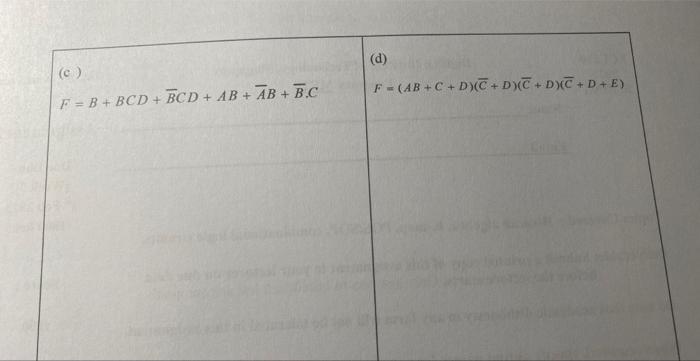 (c )
F = B + BCD + B̅CD + AB + A̅B + B̅.C
(d)
F = (AB + C + D)(C̅ + D)(C̅ + D)(C̅ + D + E)